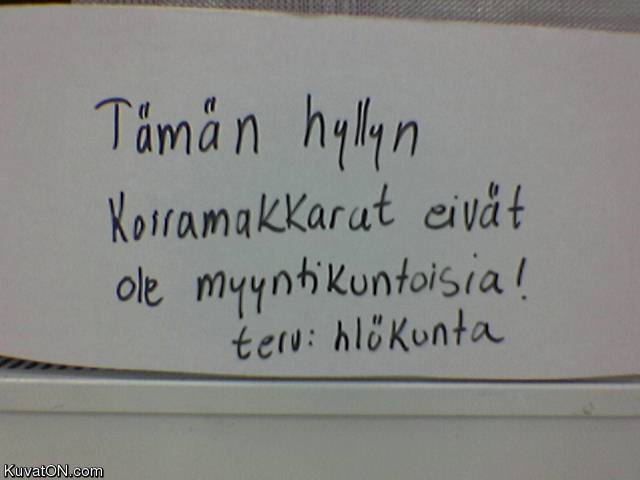 Tämän hyllyn
Koiramakkarat eivät
ole myyntikuntoisia!
terv: hlökunta
KuvatON.com